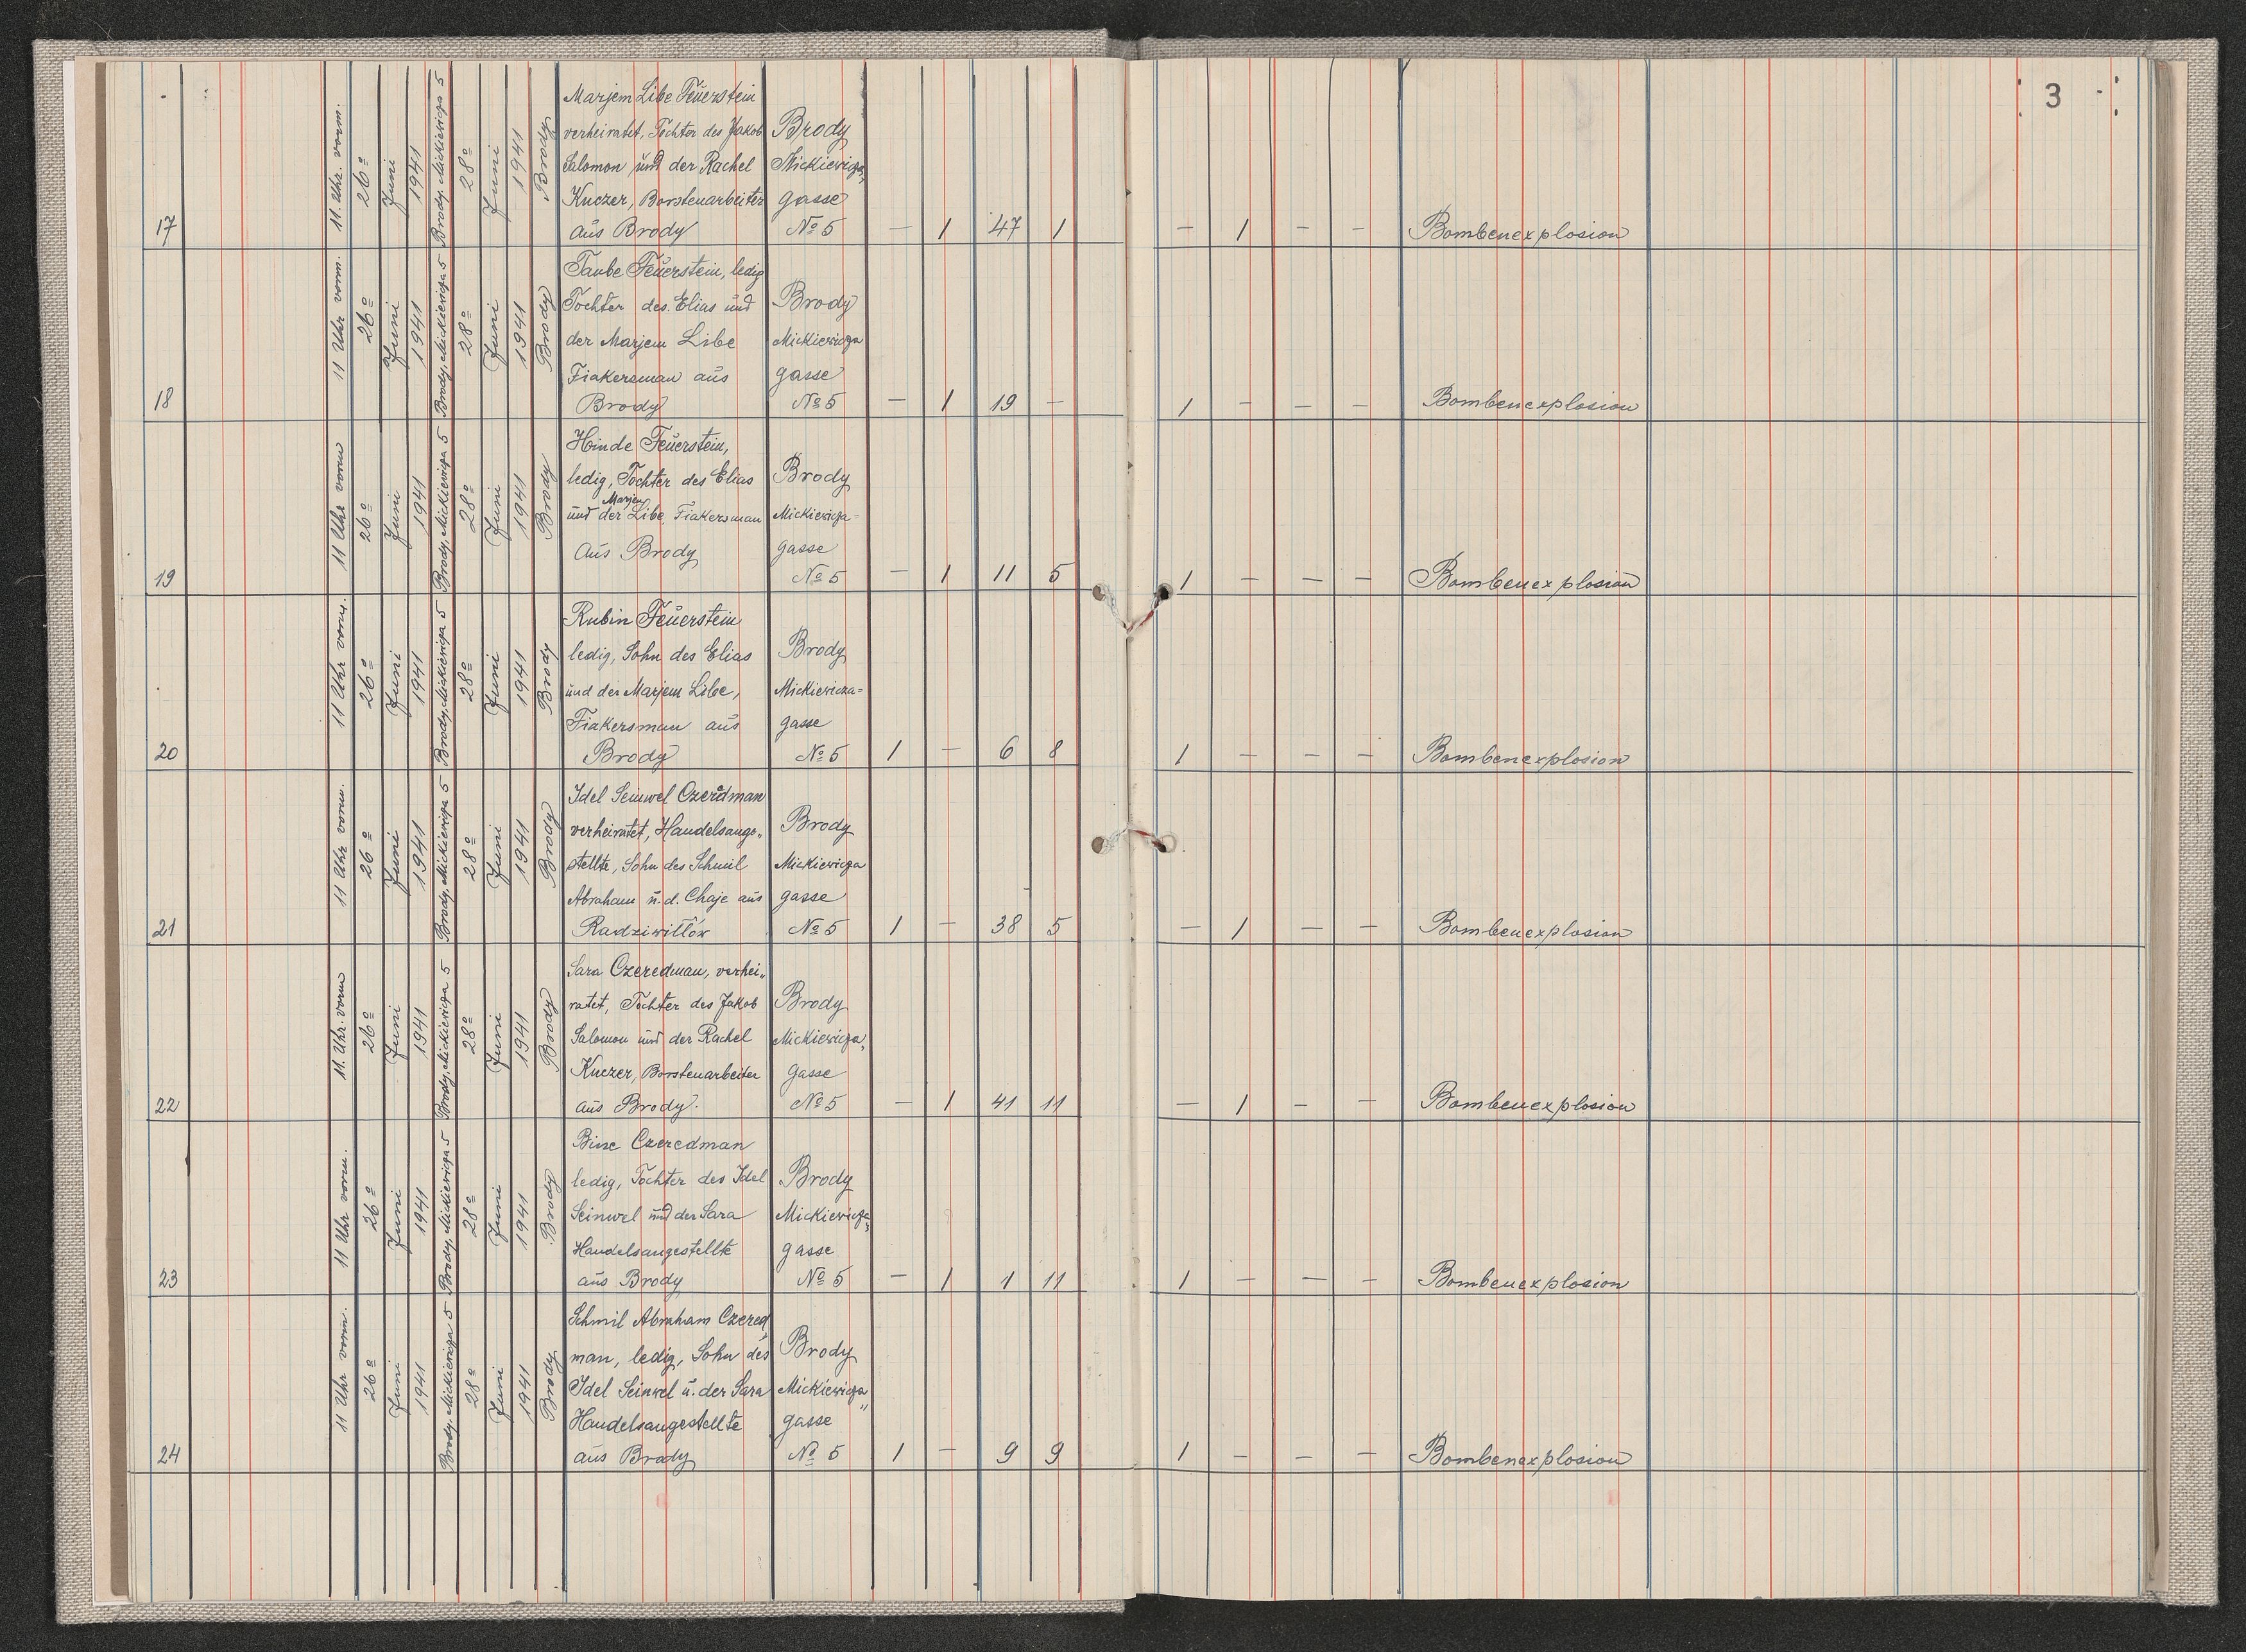 3
17
11. Uhr. vorm.
26º
Juni
1941
Brody, Mickiewicza 5
28º
Juni
1941
Brody
Marjem Libe Feuerstein
verheiratet, Tochter des Jakob
Salomon und der Rachel
Kuczer, Borstenarbeiter
aus Brody
Brody
Mickiewicza„
gasse
Nº 5
— 1 47 1 — 1 — — Bombenexplosion
18
11 Uhr vorm.
26º
Juni
1941
Brody, Mickiewicza 5
28º
Juni
1941
Brody
Taube Feuerstein, ledig
Tochter des Elias und
der Marjem Libe
Fiakersman aus
Brody
Brody
Mickiewicza
gasse
Nº 5
— 1 19 — 1 — — — Bombenexplosion
19
11 Uhr vorm
26º
Juni
1941
Brody, Mickiewicza 5
28º
Juni
1941
Brody
Hinde Feuerstein,
ledig, Tochter des Elias
Marjem
und der Libe Fiakersman
aus Brody
Brody
Mickiewicza=
gasse
Nº 5
— 1 11 5 1 — — — Bombenexplosion
20
11 Uhr vorm.
26º
Juni
1941
Brody, Mickiewicza 5
28º
Juni
1941
Brody
Rubin Feuerstein
ledig, Sohn des Elias
und der Marjem Libe,
Fiakersman aus
Brody
Brody
Mickiewicza=
gasse
Nº 5
1 — 6 8 1 — — — Bombenexplosion
21
11 Uhr vorm.
26º
Juni
1941
Brody, Mickiewicza 5
28º
Juni
1941
Brody
Idel Seinwel Czeredman
verheiratet, Handelsange„
stellte, Sohn des Schmil
Abraham u. d. Chaje aus
Radziwiłłów
Brody
Mickiewicza
gasse
Nº 5
1 — 38 5 — 1 — — Bombenexplosion
22
11. Uhr. vorm
26º
Juni
1941
Brody, Mickiewicza 5
28º
Juni
1941
Brody
Sara Czeredman, verhei„
ratet, Tochter des Jakob
Salomon und der Rachel
Kuczer, Borstenarbeiter
aus Brody.
Brody
Mickiewicza„
gasse
Nº 5
— 1 41 11 — 1 — — Bombenexplosion
23
11 Uhr vorm.
26º
Juni
1941
Brody, Mickiewicza 5
28º
Juni
1941
Brody
Bine Czeredman
ledig, Tochter des Idel
Seinwel und der Sara
Handelsangestellte
aus Brody
Brody
Mickiewicza„
gasse
Nº 5
— 1 1 11 1 — — — Bombenexplosion
24
11 Uhr vorm.
26º
Juni
1941
Brody, Mickiewicza 5
28º
Juni
1941
Brody
Schmil Abraham Czered„
man, ledig, Sohn des
Idel Seinwel u. der Sara
Handelsangestellte
aus Brody
Brody
Mickiewicza„
gasse
Nº 5
1 — 9 9 1 — — — Bombenexplosion